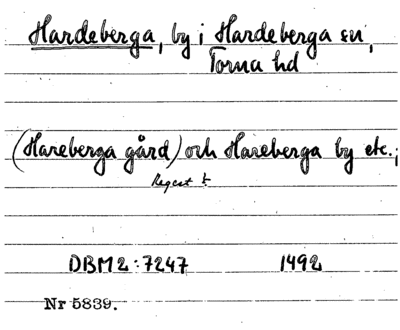 Hardeberga, by i Hardeberga sn,
Torna hd
(Hareberga gård) och Hareberga by etc.;
Regest
DBM2:7247 1492
Nr 5839.